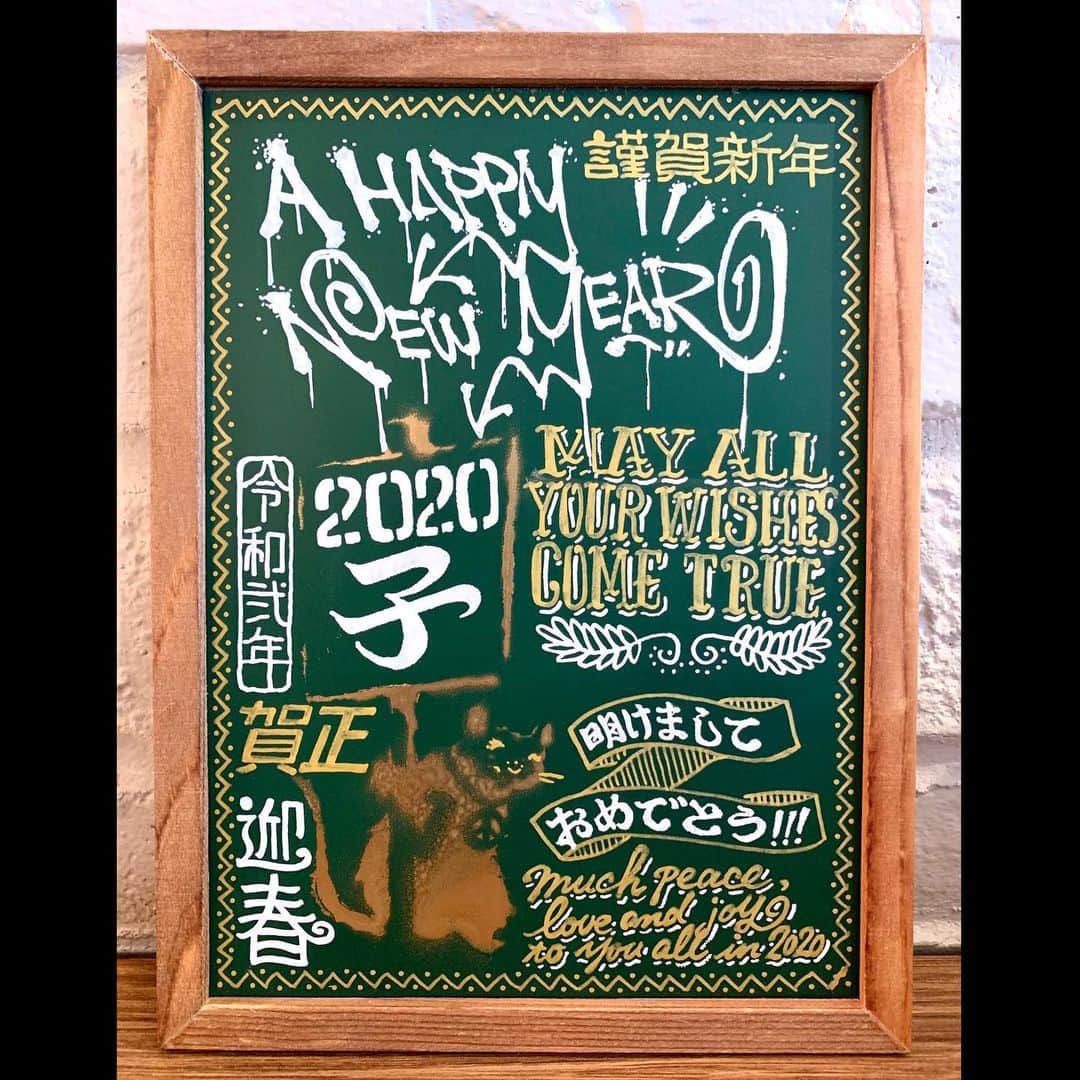 謹賀新年
A HAPPY
NEW YEAR
2020
子
令和弐年
MAY ALL
YOUR WISHES
COME TRUE
賀正
迎春
明けまして
おめでとう!!!
much peace,
love and joy
to you all in 2020